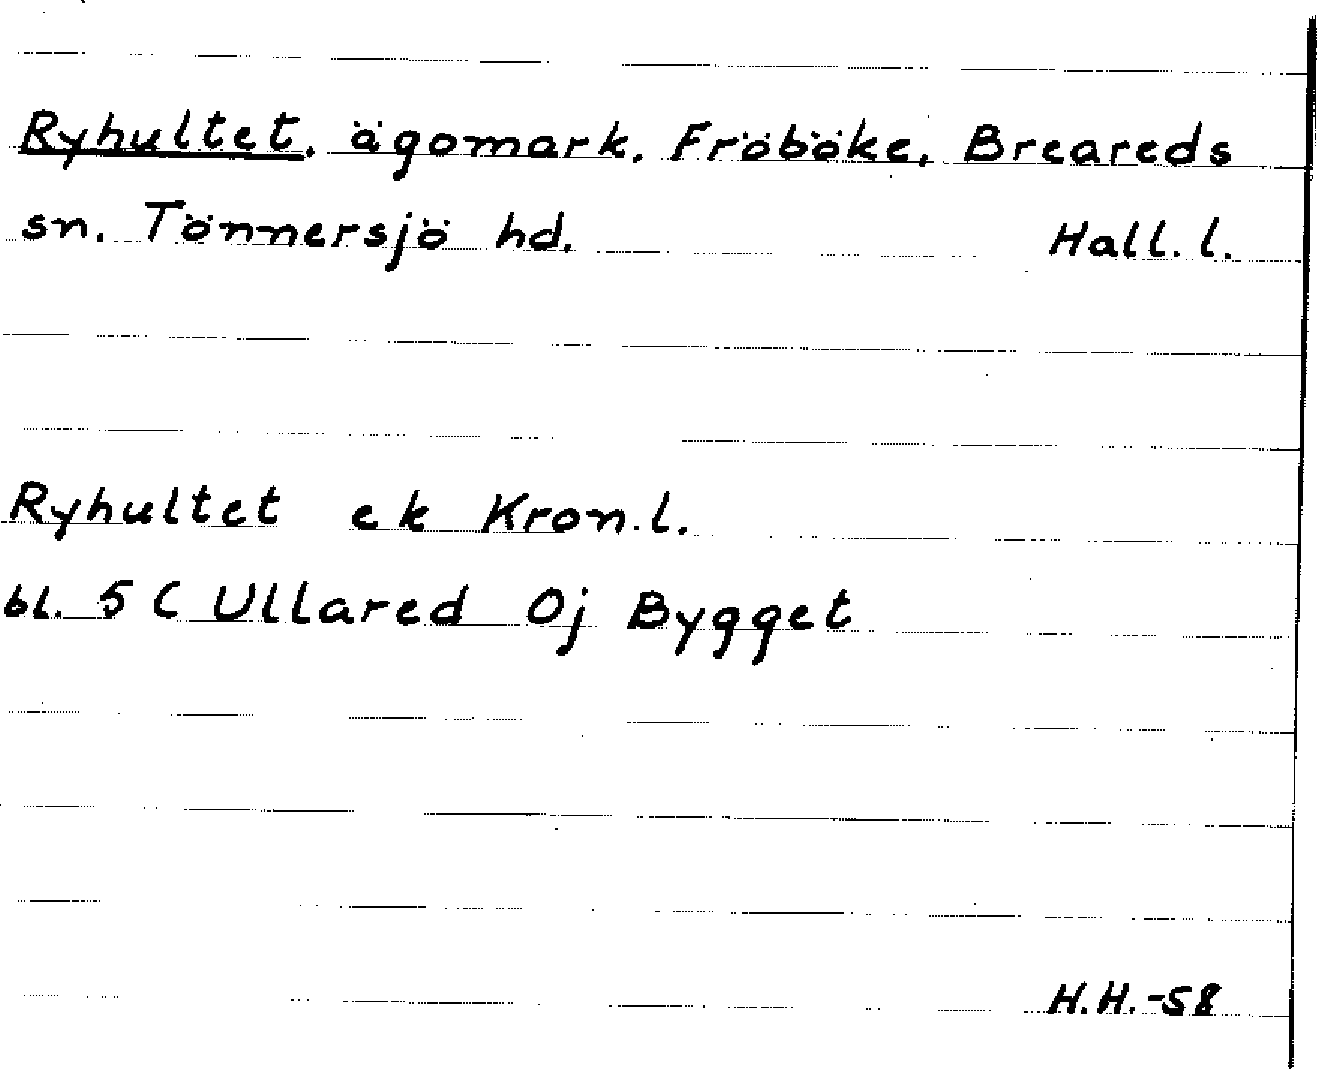 Ryhultet, ägomark, Fröböke, Breareds
sn. Tönnersjö hd. Hall. l.
Ryhultet ek Kron.l.
bl. 5 C Ullared Oj Bygget
H.H.-58